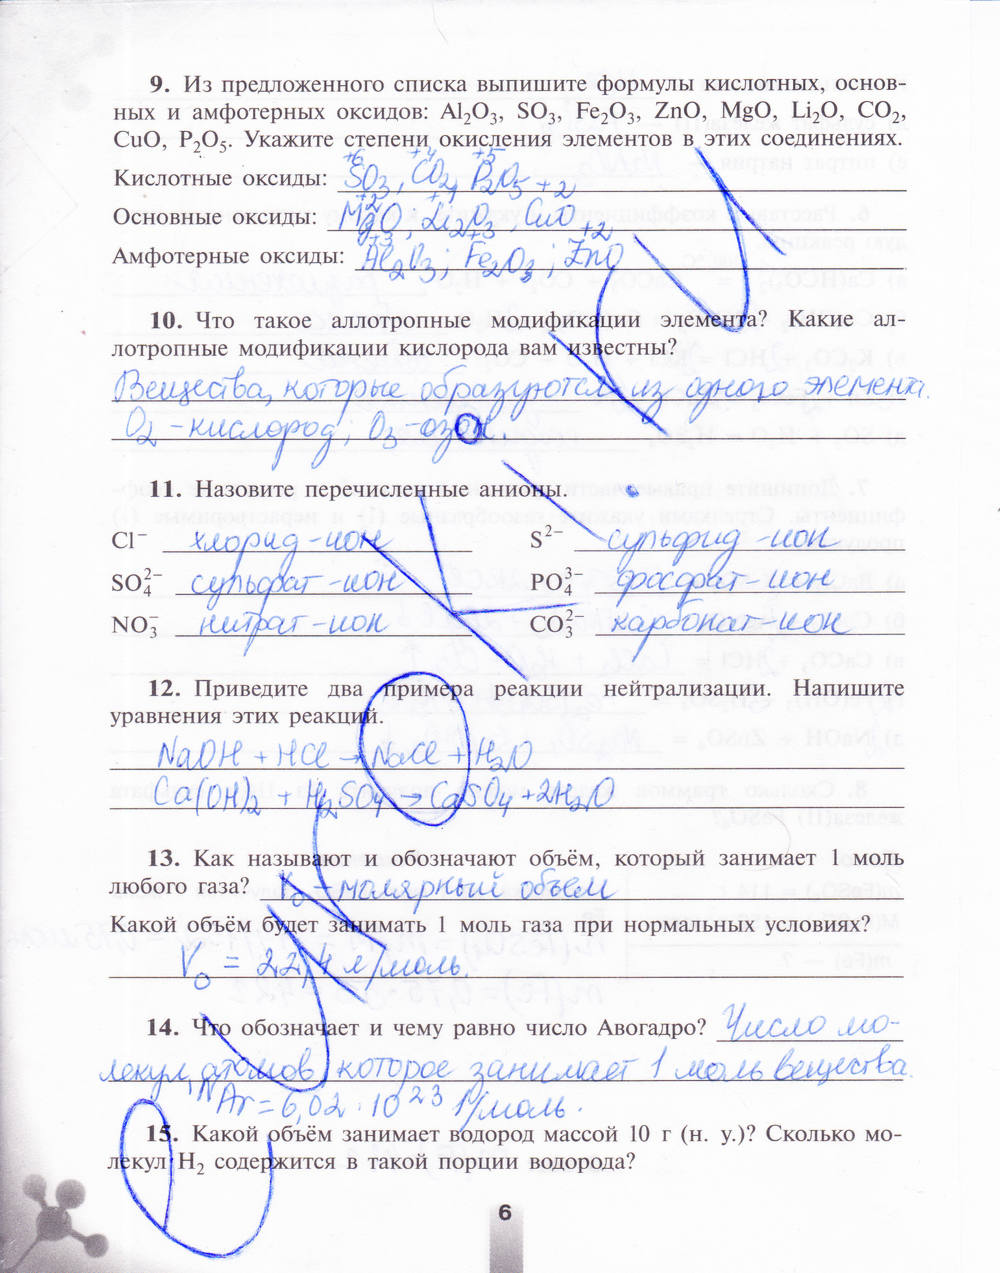 9. Из предложенного списка выпишите формулы кислотных, основ-
ных и амфотерных оксидов: Al₂O₃, SO₃, Fe₂O₃, ZnO, MgO, Li₂O, CO₂,
CuO, P₂O₅. Укажите степени окисления элементов в этих соединениях.
+6 +4 +5
Кислотные оксиды: SO₃, CO₂, P₂O₅
+2 +1 +2
Основные оксиды: MgO; Li₂O; CuO
+3 +3 +2
Амфотерные оксиды: Al₂O₃; Fe₂O₃; ZnO
10. Что такое аллотропные модификации элемента? Какие ал-
лотропные модификации кислорода вам известны?
Вещества, которые образуются из одного элемента.
O₂ - кислород; O₃ - озон.
11. Назовите перечисленные анионы.
Cl⁻ хлорид-ион S²⁻ сульфид-ион
SO₄²⁻ сульфат-ион PO₄³⁻ фосфат-ион
NO₃⁻ нитрат-ион CO₃²⁻ карбонат-ион
12. Приведите два примера реакции нейтрализации. Напишите
уравнения этих реакций.
NaOH + HCl → NaCl + H₂O
Ca(OH)₂ + H₂SO₄ → CaSO₄ + 2H₂O
13. Как называют и обозначают объём, который занимает 1 моль
любого газа? V₀ - молярный объем
Какой объём будет занимать 1 моль газа при нормальных условиях?
V₀ = 22,4 л/моль.
14. Что обозначает и чему равно число Авогадро? Число мо-
лекул, атомов, которое занимает 1 моль вещества.
Ar = 6,02 · 10²³ 1/моль.
15. Какой объём занимает водород массой 10 г (н. у.)? Сколько мо-
лекул H₂ содержится в такой порции водорода?
6